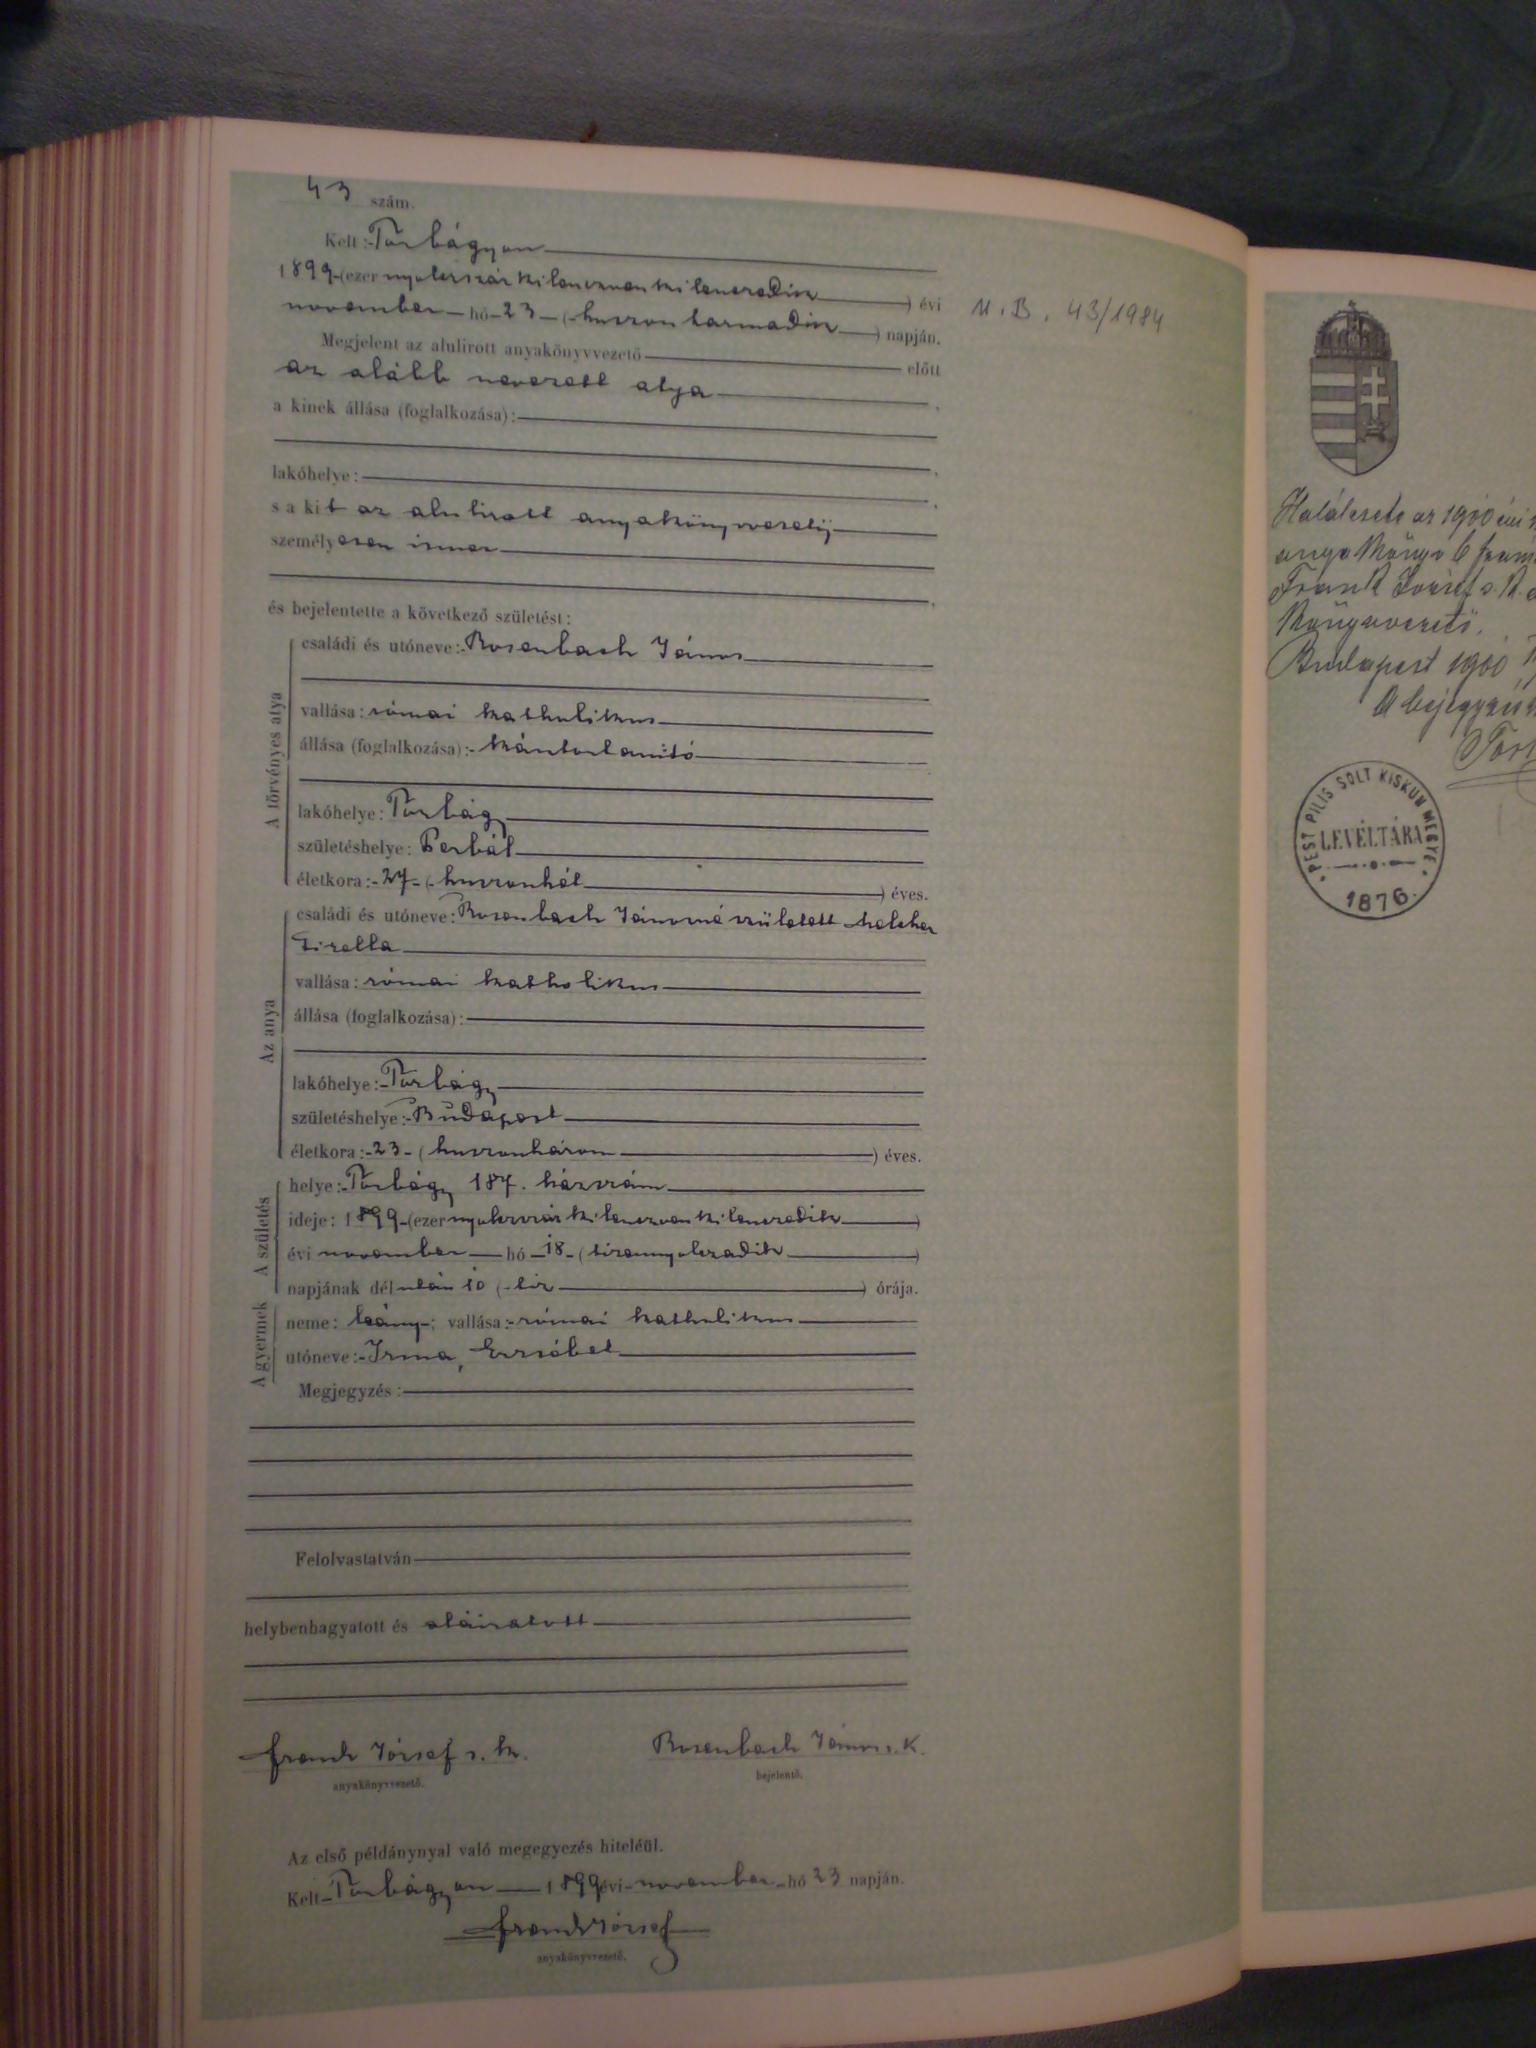 43 szám.
Kelt: Torbágyon
1899 (ezer nyolczszáz kilenczven kilenczedik) évi
november hó 23 (huszon harmadik) napján.
Megjelent az alulirott anyakönyvvezető előtt
az alább nevezett atya,
a kinek állása (foglalkozása):
lakóhelye:
s a kit az alulirott anyakönyvvezető
személyesen ismer
és bejelentette a következő születést:
A törvényes atya
családi és utóneve: Rosenbach János
vallása: római katholikus
állása (foglalkozása): kántortanító
lakóhelye: Torbágy
születéshelye: Perbál
életkora: 27 (huszonhét) éves.
Az anya
családi és utóneve: Rosenbach Jánosné született Melcher
Gizella
vallása: római katholikus
állása (foglalkozása):
lakóhelye: Torbágy
születéshelye: Budapest
életkora: 23 (huszonhárom) éves.
A születés
helye: Torbágy 187. házszám
ideje: 1899 (ezer nyolczszáz kilenczven kilenczedik)
évi november hó 18 (tizennyolczadik)
napjának délután 10 (tíz) órája.
A gyermek
neme: leány; vallása: római katholikus
utóneve: Irma, Erzsébet
Megjegyzés:
Felolvastatván
helybenhagyatott és aláiratott
Frank József s. k. Rosenbach János s. K.
anyakönyvvezető. bejelentő.
Az első példánynyal való megegyezés hiteléül.
Kelt Torbágyon 1899 évi november hó 23 napján.
Frank József
anyakönyvvezető.
U. B. 43/1984
Halálesete az 1900 évi
anyakönyv 6
Frank József s. k.
könyvvezető.
Budapest 1900
A bejegyzés
PEST PILIS SOLT KISKUN MEGYE
LEVÉLTÁRA
1876.